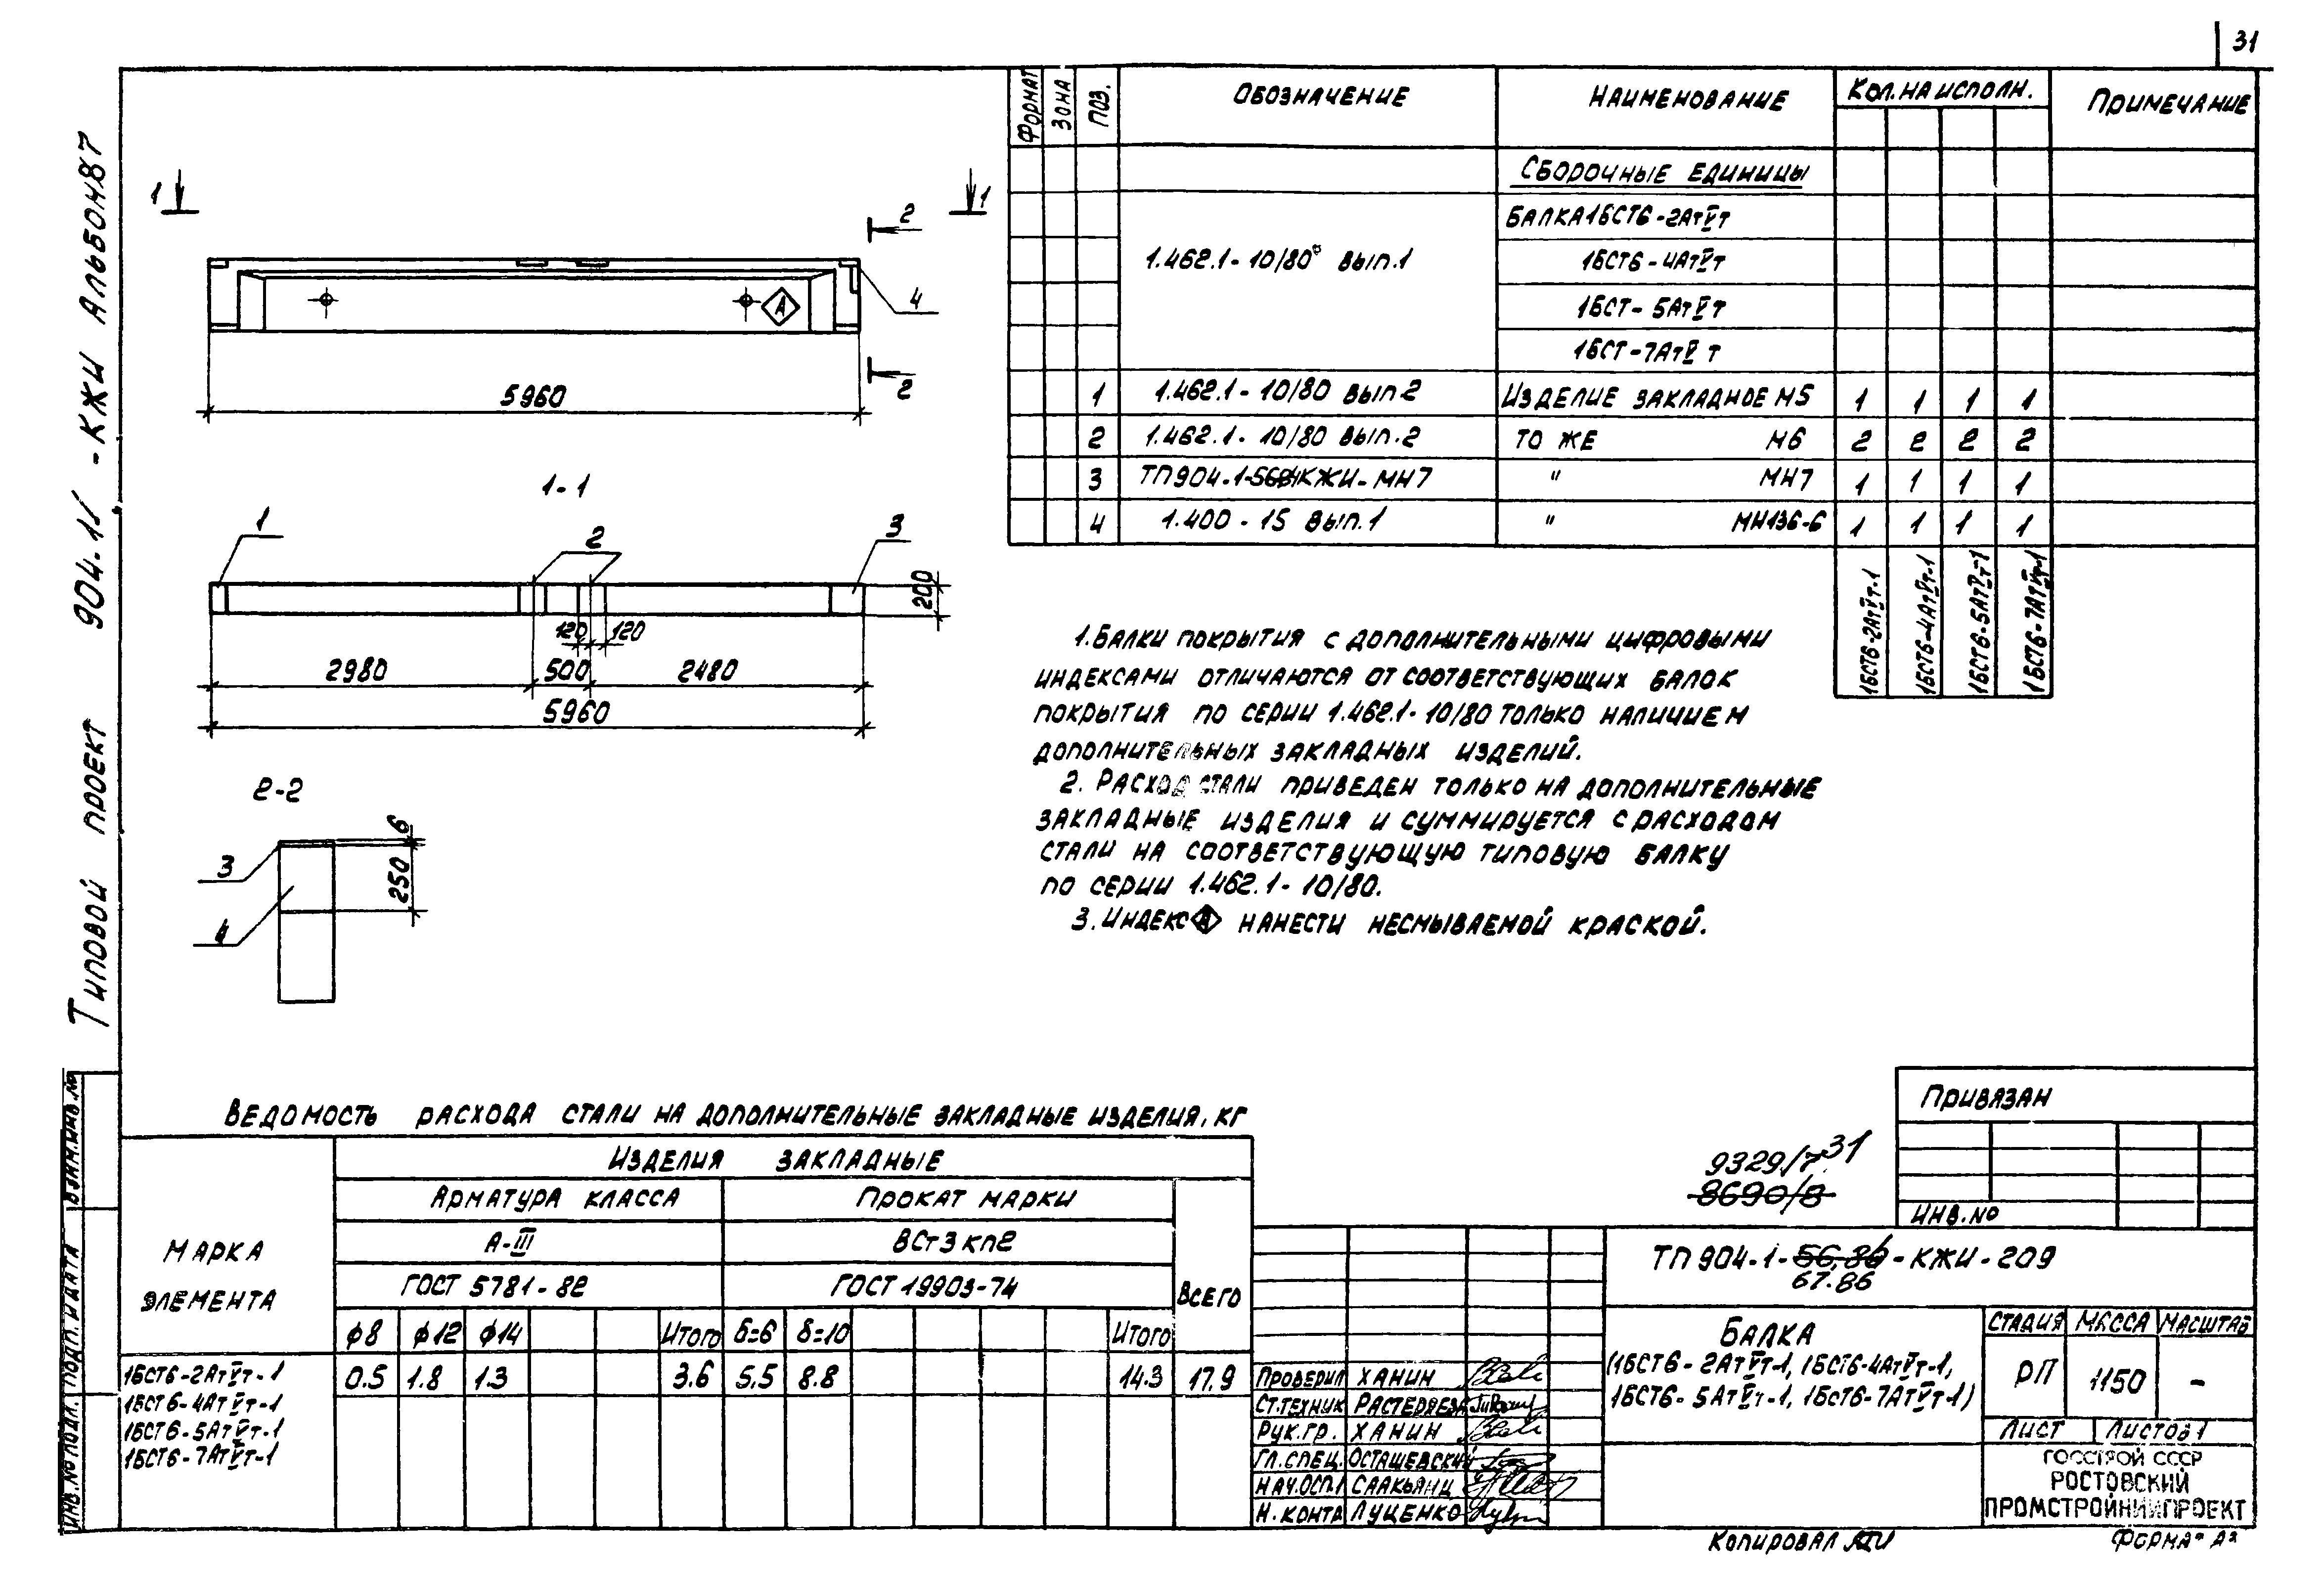 31
Типовой проект 904-1/ -КЖИ Альбом 87
1 1
2
4
2
5960
1-1
1 2 3
200
120 120
2980 500 2480
5960
2-2
6
250
3
4
Формат Зона Поз. Обозначение Наименование Кол. на исполн. Примечание
Сборочные единицы
Балка 1БСТ6-2АтⅤт
1.462.1-10/80 вып.1 1БСТ6-4АтⅤт
1БСТ-5АтⅤт
1БСТ-7АтⅤт
1 1.462.1-10/80 вып.2 Изделие закладное М5 1 1 1 1
2 1.462.1-10/80 вып.2 То же М6 2 2 2 2
3 ТП904-1- КЖИ-МН7 " МН7 1 1 1 1
4 1.400-15 вып.1 " МН136-6 1 1 1 1
1БСТ6-2АтⅤт-1
1БСТ6-4АтⅤт-1
1БСТ6-5АтⅤт-1
1БСТ6-7АтⅤт-1
1. Балки покрытия с дополнительными цифровыми
индексами отличаются от соответствующих балок
покрытия по серии 1.462.1-10/80 только наличием
дополнительных закладных изделий.
2. Расход стали приведен только на дополнительные
закладные изделия и суммируется с расходом
стали на соответствующую типовую балку
по серии 1.462.1-10/80.
3. Индекс А нанести несмываемой краской.
Ведомость расхода стали на дополнительные закладные изделия, кг
Марка элемента
Изделия закладные
Арматура класса Прокат марки
А-III ВСт3кп2
ГОСТ 5781-82 ГОСТ 19903-74 Всего
ф8 ф12 ф14 Итого δ=6 δ=10 Итого
1БСТ6-2АтⅤт-1 0.5 1.8 1.3 3.6 5.5 8.8 14.3 17.9
1БСТ6-4АтⅤт-1
1БСТ6-5АтⅤт-1
1БСТ6-7АтⅤт-1
Инв. № подл. Подп. и дата Взам. инв. №
Привязан
Инв. №
9329/7 31
8690/8
ТП 904-1-56.86-КЖИ-209
67.86
Балка
(1БСТ6-2АтⅤт-1, 1БСТ6-4АтⅤт-1,
1БСТ6-5АтⅤт-1, 1БСТ6-7АтⅤт-1)
Стадия Масса Масштаб
РП 1150 -
Лист Листов 1
Проверил Ханин
Ст.техник Растеряева
Рук.гр. Ханин
Гл.спец. Осташевский
Нач.ОСП1 Саакьянц
Н.контр Луценко
ГОССТРОЙ СССР
РОСТОВСКИЙ
ПРОМСТРОЙНИИПРОЕКТ
Копировал
Формат А3